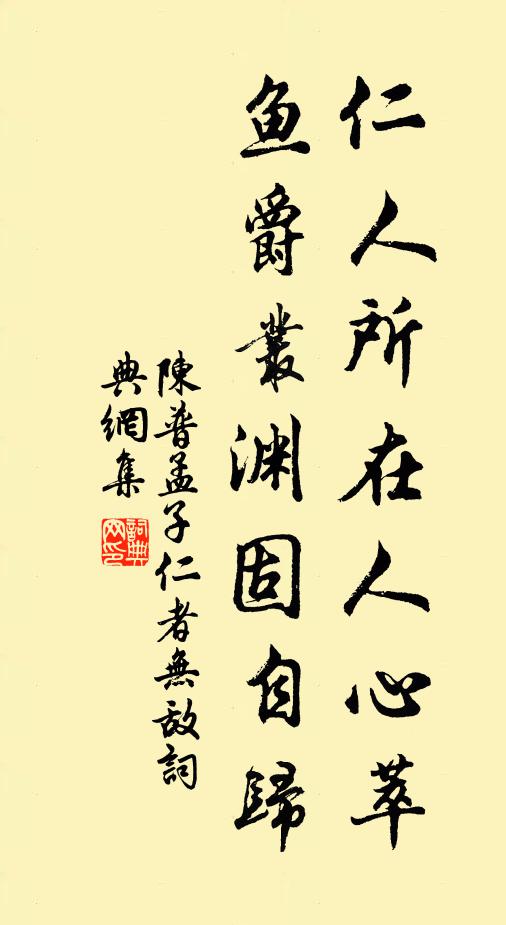 仁人所在人心萃
鱼爵叢渊固自歸
陳普孟子仁者無敌詞
典網集
詞典网印